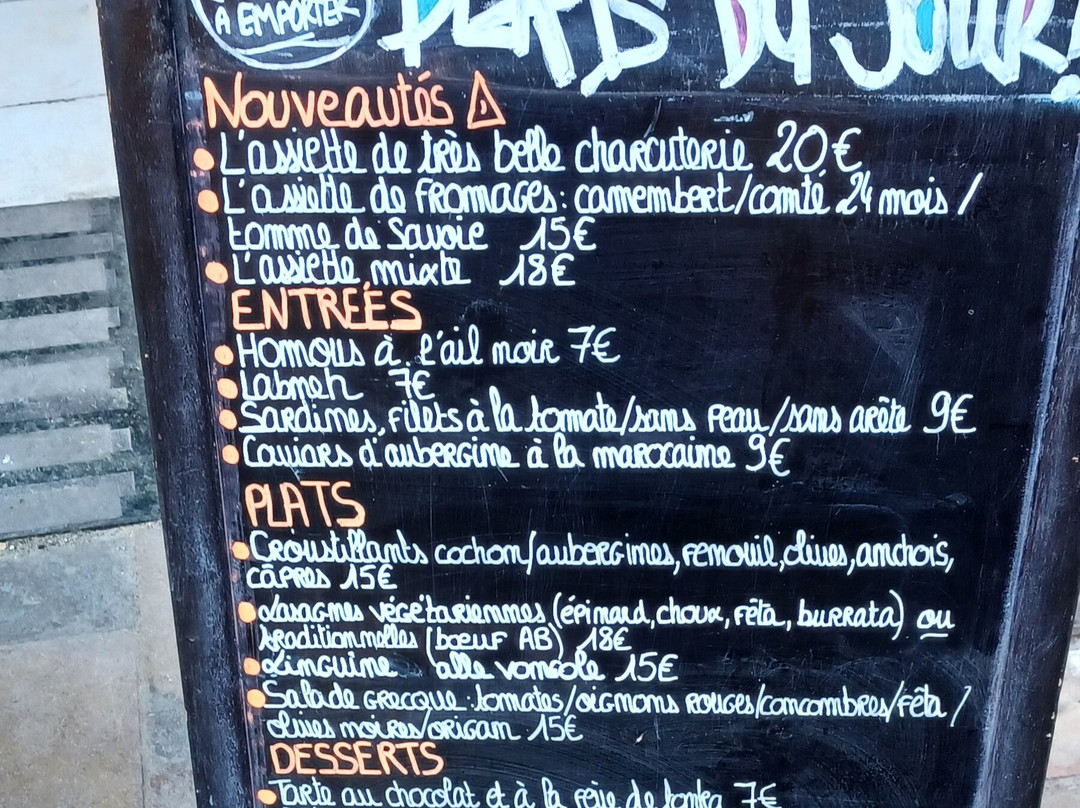 À EMPORTER
PLATS DU JOUR!
Nouveautés ⚠
• L'assiette de très belle charcuterie 20€
• L'assiette de fromages: camembert/comté 24 mois /
tomme de Savoie 15€
• L'assiette mixte 18€
ENTRÉES
• Homous à l'ail noir 7€
• Labneh 7€
• Sardines, filets à la tomate/sans peau/sans arête 9€
• Caviars d'aubergine à la marocaine 9€
PLATS
• Croustillants cochon/aubergines, fenouil, olives, anchois,
câpres 15€
• Lasagnes végétariennes (épinard, choux, fêta, burrata) ou
traditionnelles (bœuf AB) 18€
• Linguine alle vongole 15€
• Salade grecque: tomates/oignons rouges/concombres/fêta /
olives noires/origan 15€
DESSERTS
• Tarte au chocolat et à la fève de tonka 7€